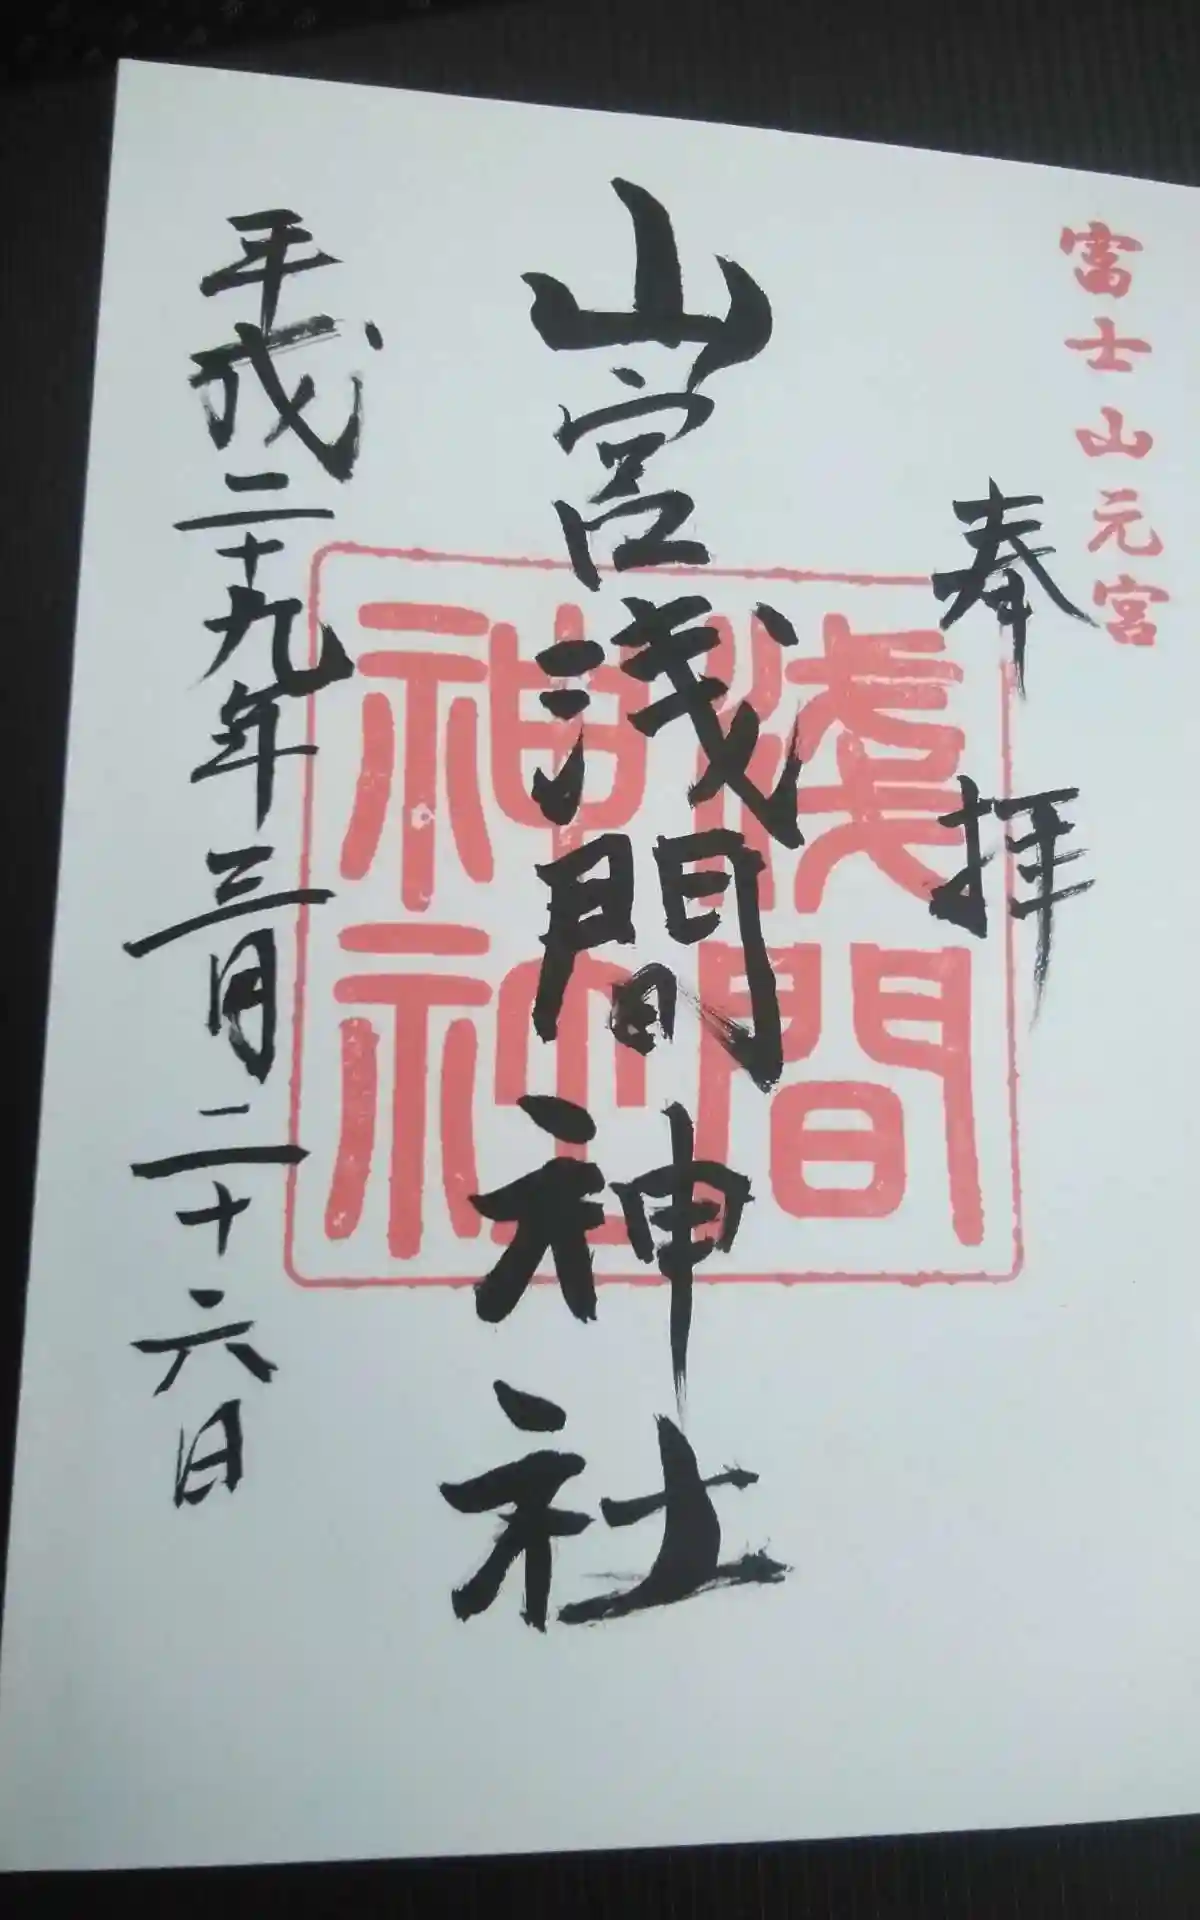 富士山元宮
奉拝
山宮浅間神社
浅間
神社
平成二十九年三月二十六日